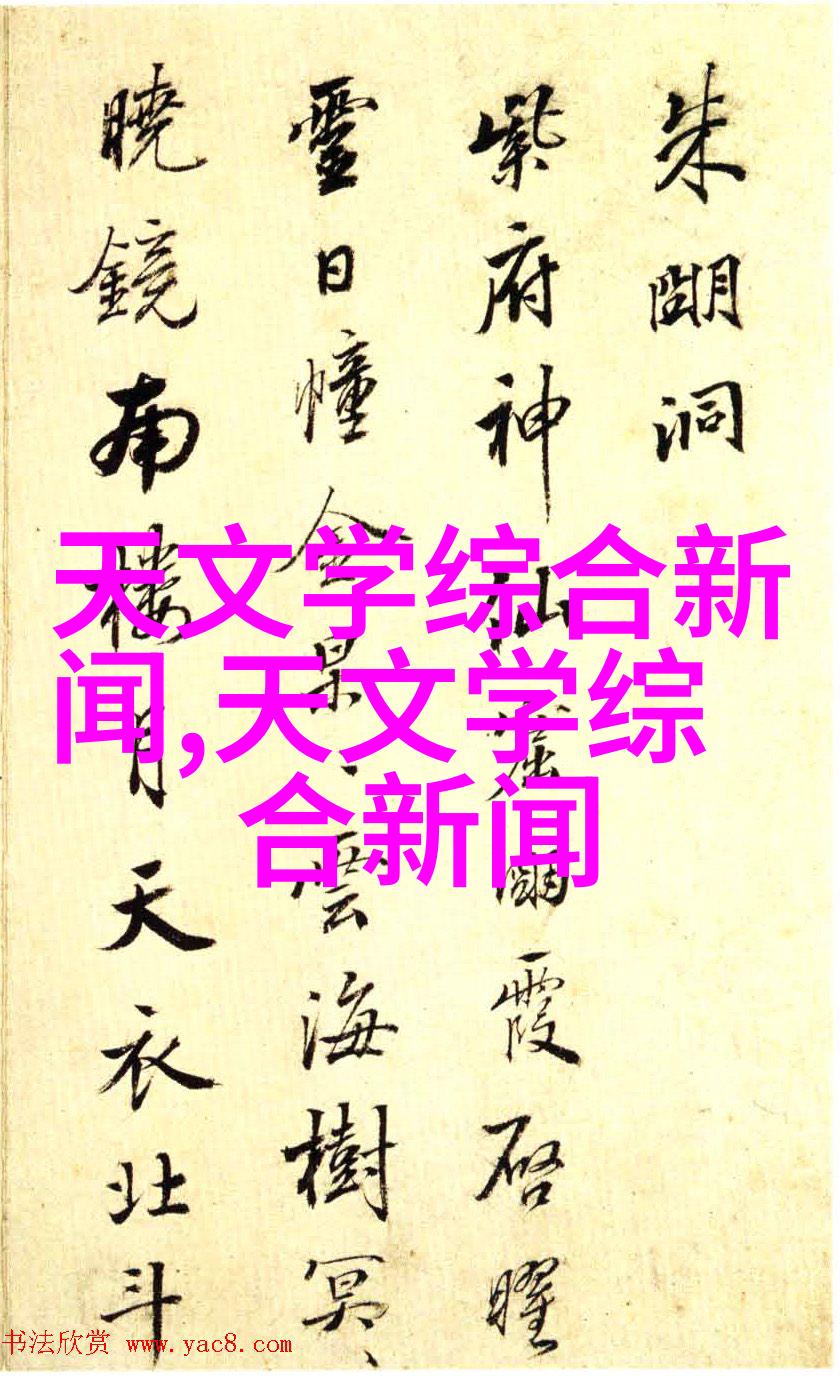 朱朙洞
紫府神仙窟朙霞启曜
靈日幢金杲〻雲海樹冥〻
曉鏡南樓月天衣北斗
天文学综合新
闻,天文学综
合新闻
书法欣赏 www.yac8.com